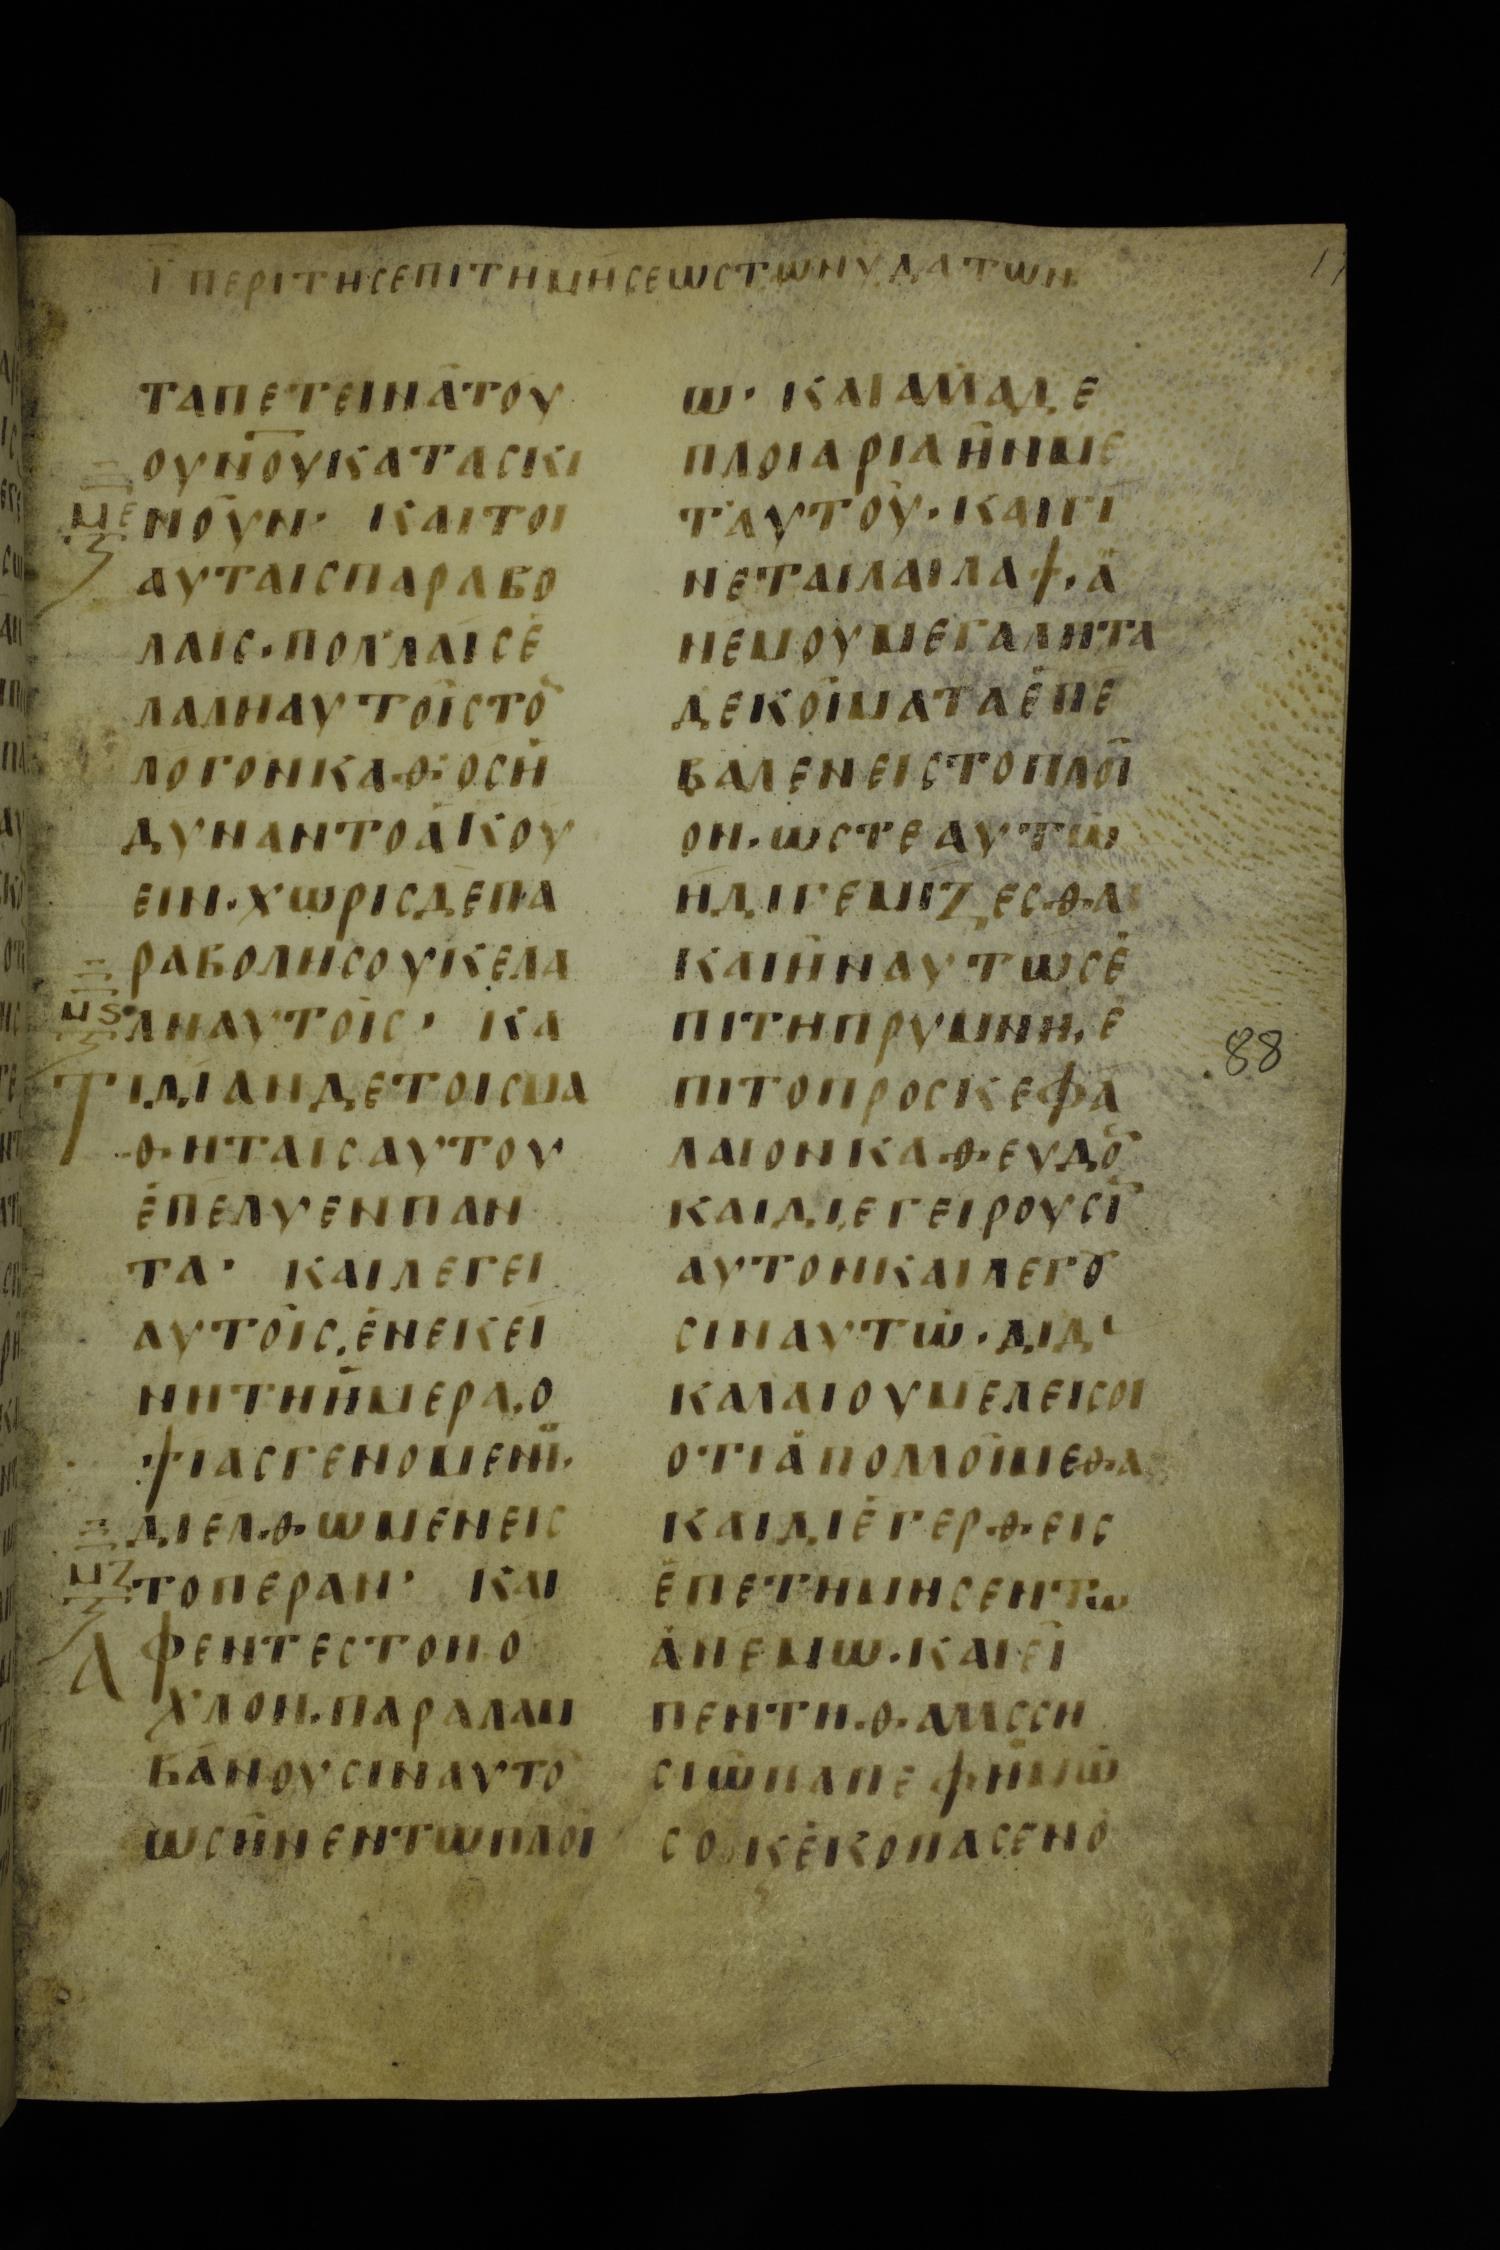 Ι ΠΕΡΙΤΗСΕΠΙΤΗΜΗСΕΩСΤΩΝΥΔΑΤΩΝ
ΤΑΠΕΤΕΙΝΑΤΟΥ
ΟΥΝΟΥΚΑΤΑСΚΙ
ΜΕ
ΝΟΥΝ· ΚΑΙΤΟΙ
ΑΥΤΑΙСΠΑΡΑΒΟ
ΛΑΙС·ΠΟΛΛΑΙСΕ
ΛΑΛΗΑΥΤΟΙСΤΟ
ΛΟΓΟΝΚΑΘΟСΗ
ΔΥΝΑΝΤΟΑΚΟΥ
ΕΙΝ·ΧΩΡΙСΔΕΠΑ
ΡΑΒΟΛΗСΟΥΚΕΛΑ
ΜϚ
ΛΗΑΥΤΟΙС· ΚΑ
ΤΙΔΙΑΝΔΕΤΟΙСΜΑ
ΘΗΤΑΙСΑΥΤΟΥ
ΕΠΕΛΥΕΝΠΑΝ
ΤΑ· ΚΑΙΛΕΓΕΙ
ΑΥΤΟΙС,ΕΝΕΚΕΙ
ΝΗΤΗΗΜΕΡΑ,Ο
ΨΙΑСΓΕΝΟΜΕΝΗ·
ΔΙΕΛΘΩΜΕΝΕΙС
ΜΖ
ΤΟΠΕΡΑΝ· ΚΑΙ
ΑΦΕΝΤΕСΤΟΝΟ
ΧΛΟΝ·ΠΑΡΑΛΑΜ
ΒΑΝΟΥСΙΝΑΥΤΟ
ΩСΗΝΕΝΤΩΠΛΟΙ
Ω· ΚΑΙΑΜΑΔΕ
ΠΛΟΙΑΡΙΑΗΝΜΕ
Τ'ΑΥΤΟΥ·ΚΑΙΓΙ
ΝΕΤΑΙΛΑΙΛΑΨ·Α
ΝΕΜΟΥΜΕΓΑΛΗΤΑ
ΔΕΚΟΙΜΑΤΑΕΠΕ
ΒΑΛΕΝΕΙСΤΟΠΛΟΙ
ΟΝ·ΩСΤΕΑΥΤΩ
ΗΔΙΓΕΜΙΖΕСΘΑΙ
ΚΑΙΗΝΑΥΤΩСΕ
ΠΙΤΗΠΡΥΜΝΗ,Ε
88
ΠΙΤΟΠΡΟСΚΕΦΑ
ΛΑΙΟΝΚΑΘΕΥΔΟ
ΚΑΙΔΙΕΓΕΙΡΟΥСΙ
ΑΥΤΟΝΚΑΙΛΕΓΟΥ
СΙΝΑΥΤΩ·ΔΙΔΑ
ΚΑΛΑΙΟΥΜΕΛΕΙСΟΙ
ΟΤΙΑΠΟΛΛΟΙΜΕΘΑ
ΚΑΙΔΙΕΓΕΡΘΕΙС
ΕΠΕΤΗΜΗСΕΝΤΩ
ΑΝΕΜΩ·ΚΑΙΕΙ
ΠΕΝΤΗΘΑΛΑССΗ
СΙΩΠΑΠΕΦΗΜΩ
СΟ,ΚΕΚΟΠΑСΕΝΟ